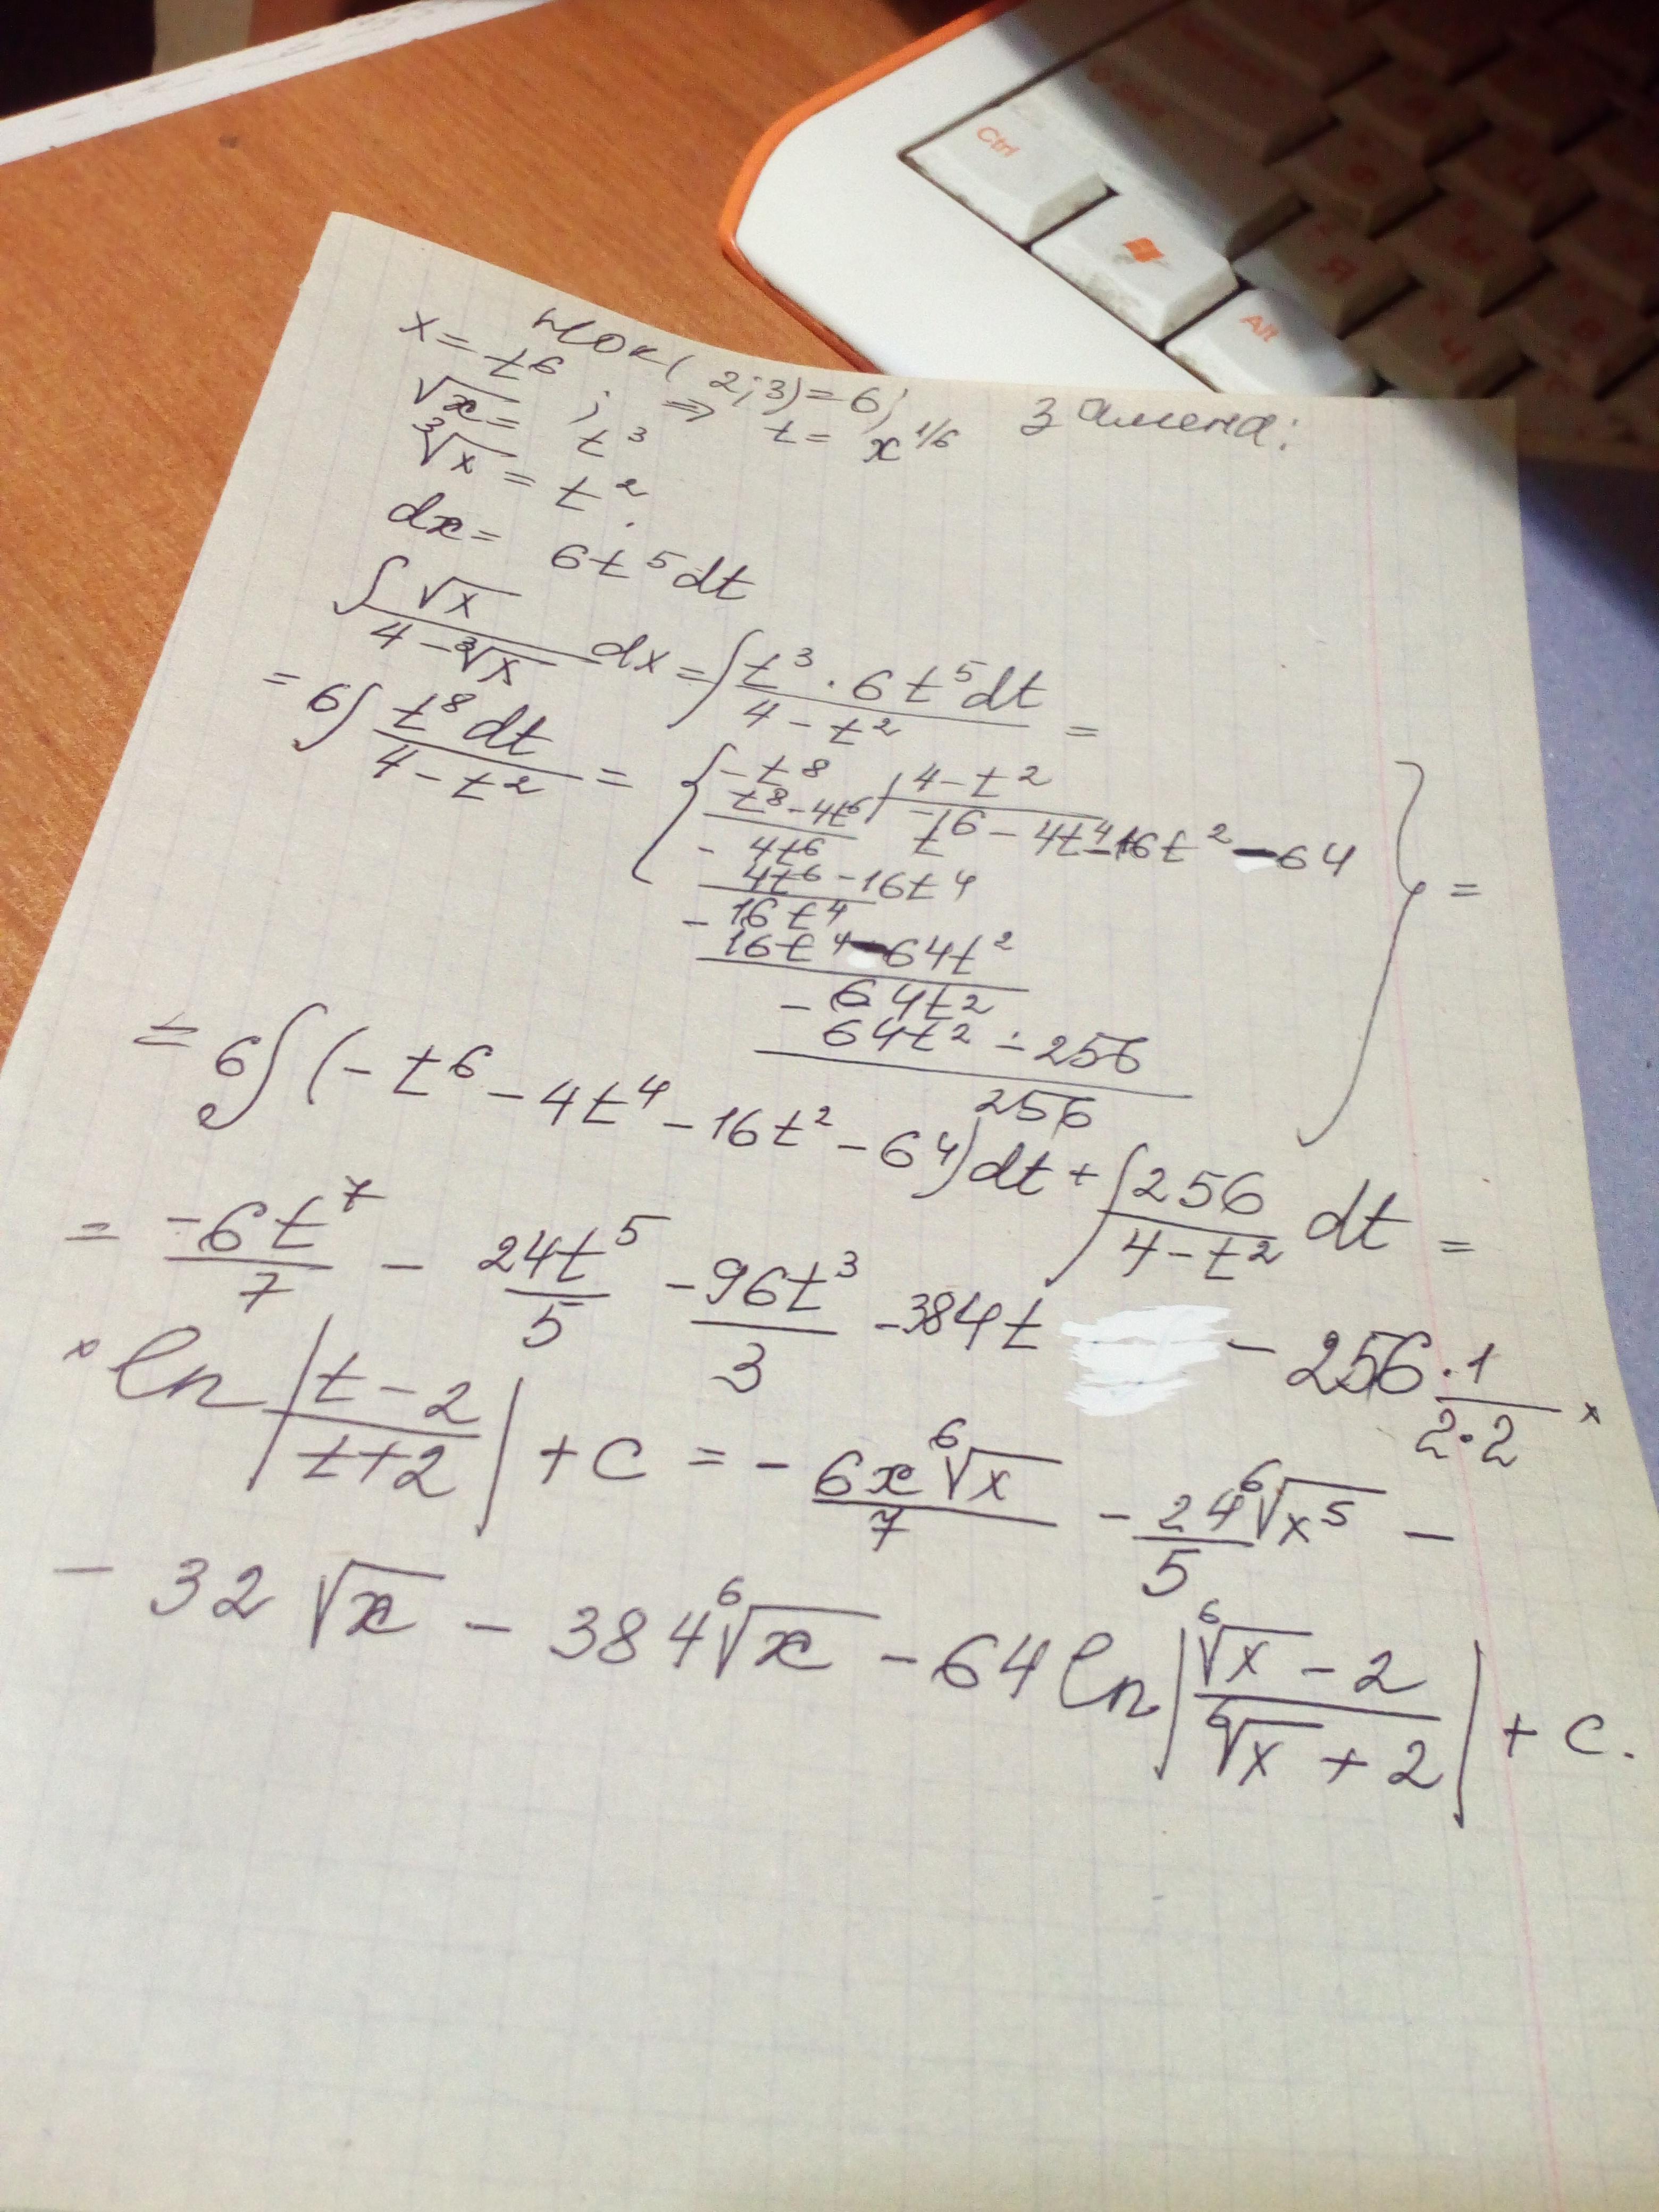 Ctrl
Alt
Я
Ч
НОК(2;3)=6; Замена:
x = t^6; ⇒ t = x^{1/6}
√x = t^3
∛x = t^2.
dx = 6t^5dt
∫ √x/(4-∛x) dx = ∫ t^3·6t^5dt/(4-t^2) =
= 6∫ t^8dt/(4-t^2) = { -t^8 | 4-t^2
t^8-4t^6 | -t^6-4t^4-16t^2-64 } =
- 4t^6
4t^6-16t^4
- 16t^4
16t^4-64t^2
- 64t^2
64t^2-256
256
= 6∫(-t^6-4t^4-16t^2-64)dt + ∫ 256/(4-t^2) dt =
= -6t^7/7 - 24t^5/5 - 96t^3/3 - 384t - 256·1/(2·2) ×
× ln|(t-2)/(t+2)| + C = - 6x⁶√x/7 - 24⁶√x^5/5 -
- 32√x - 384⁶√x - 64 ln|(⁶√x-2)/(⁶√x+2)| + C.